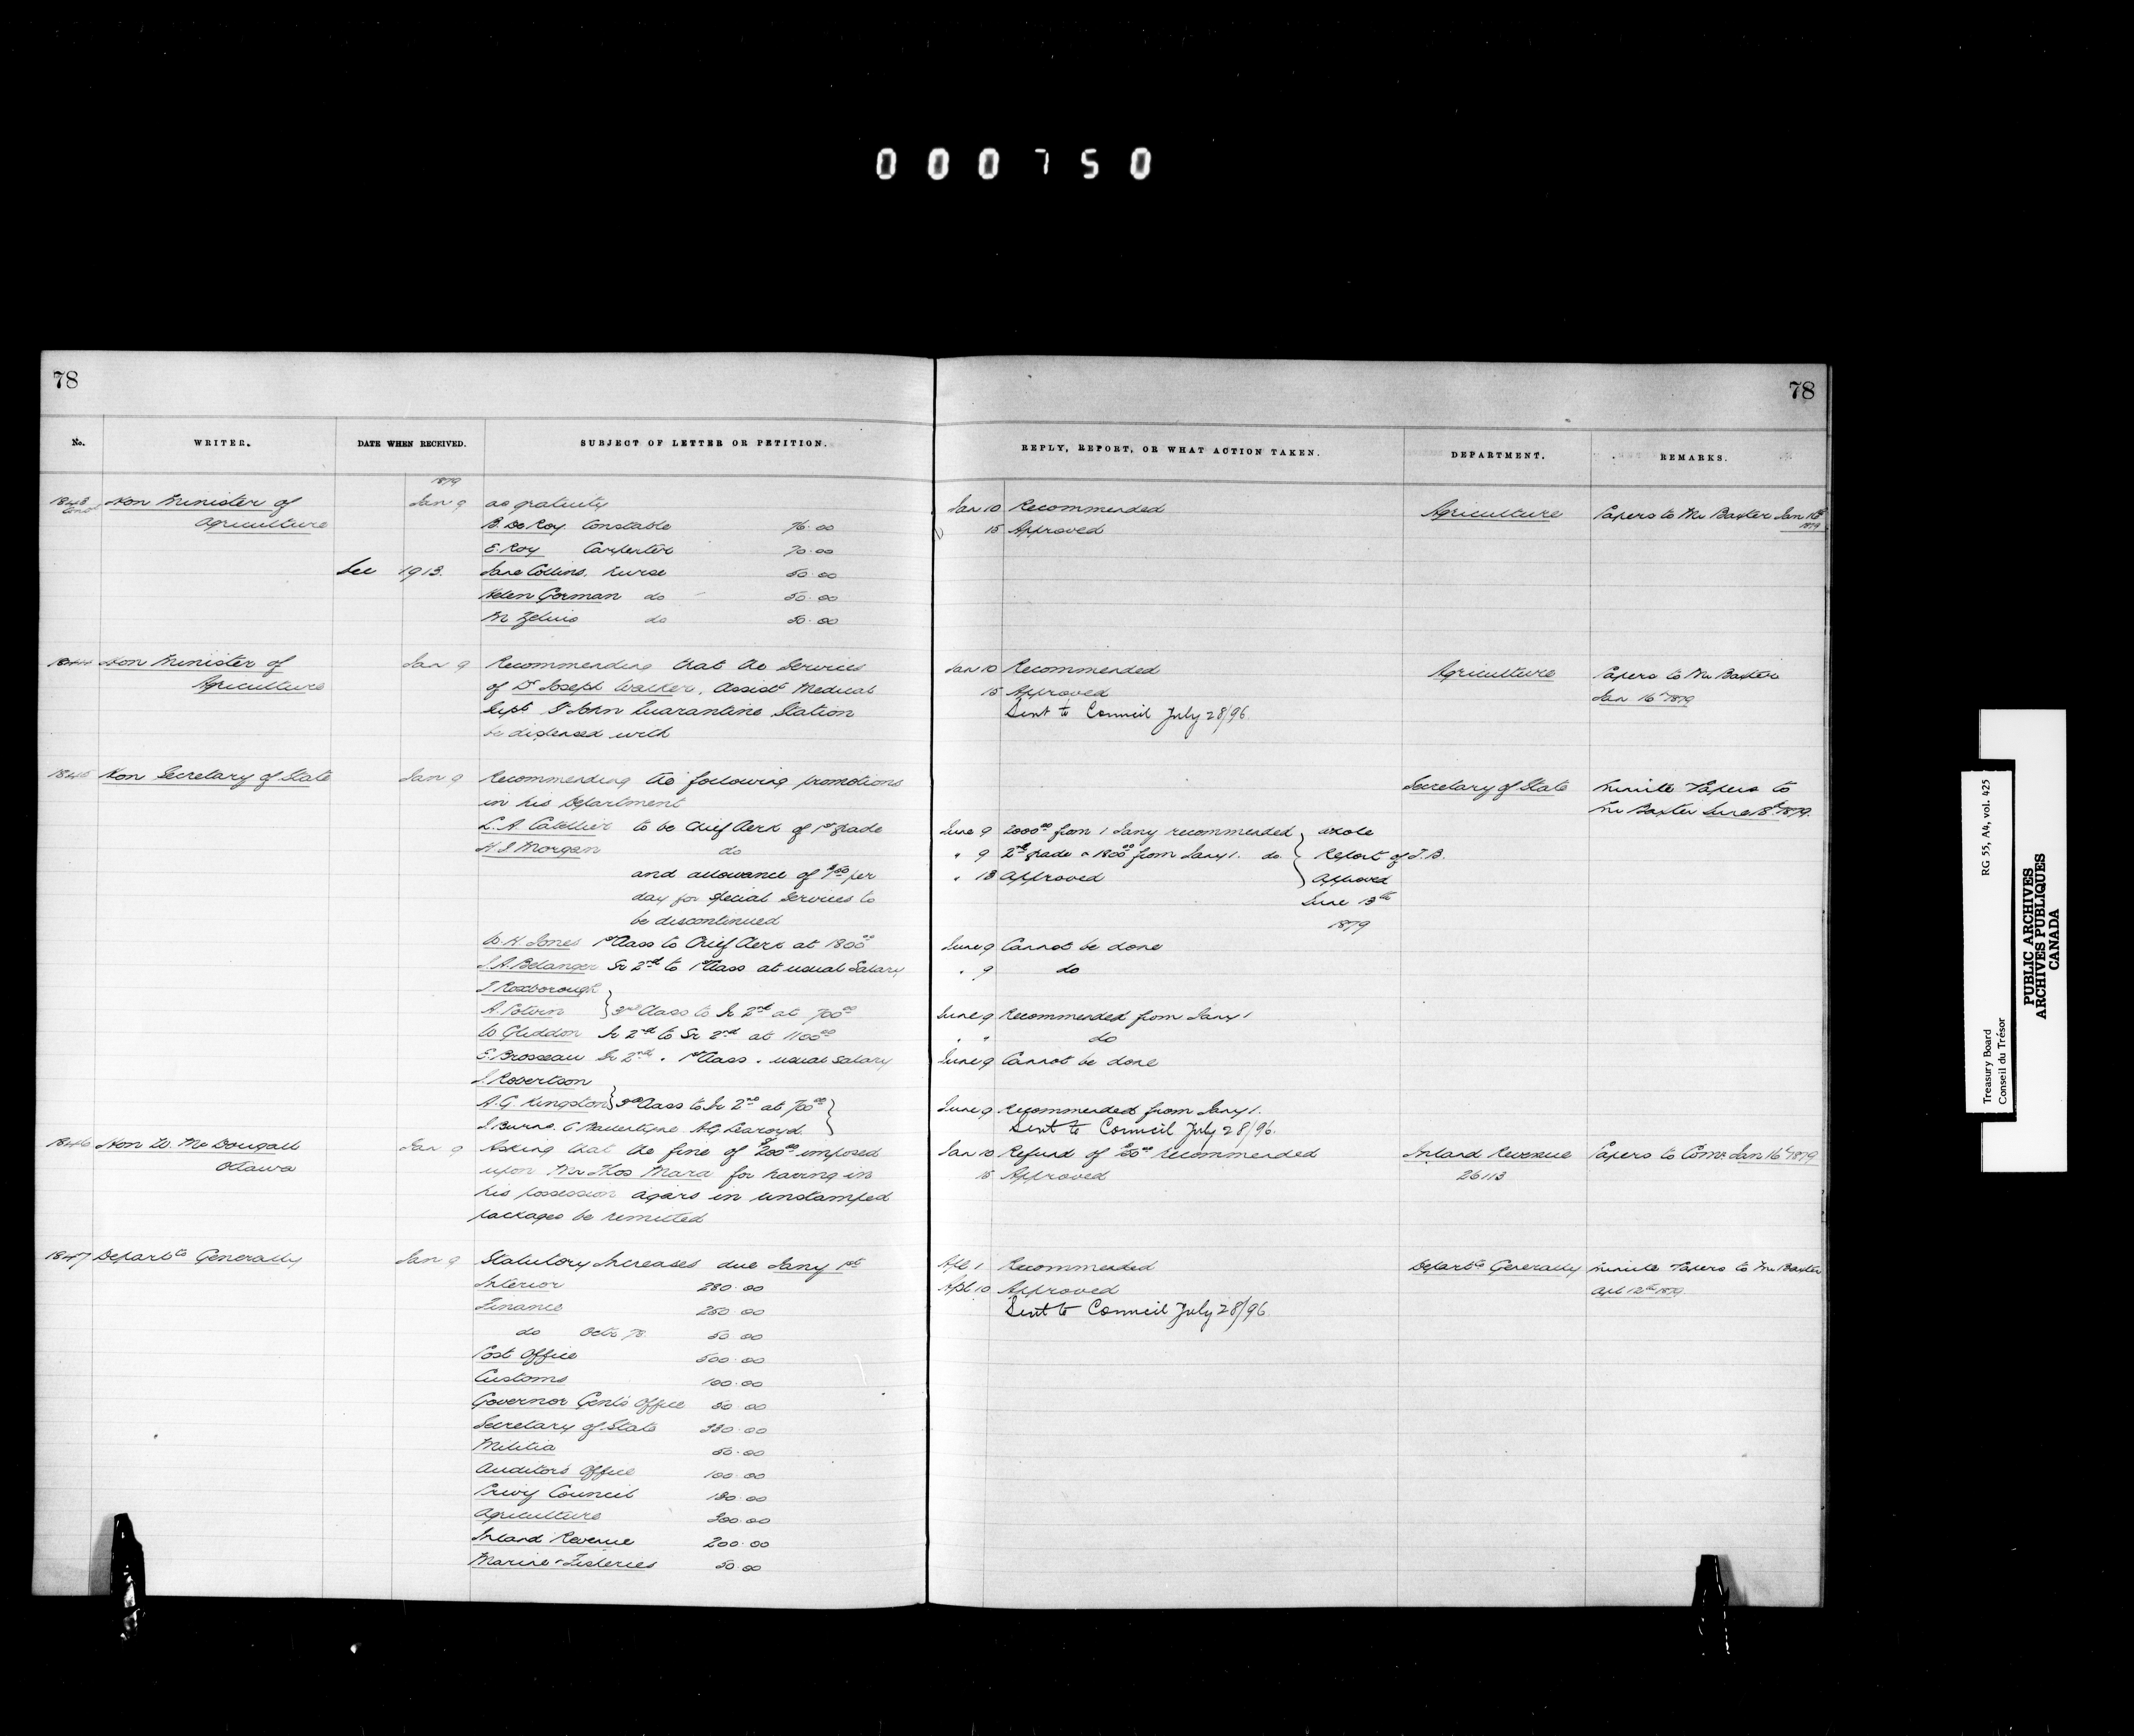 000750
78
78
No. WRITER. DATE WHEN RECEIVED. SUBJECT OF LETTER OR PETITION. REPLY, REPORT, OR WHAT ACTION TAKEN. DEPARTMENT. REMARKS.
1879
1843 Hon Minister of Jan 9 as gratuity Jan 10 Recommended Agriculture Papers to Mr Baxter Jan 16th
Agriculture B. De Roy Constable 76.00 15 Approved 1879
E. Roy Carpenter 70.00
See 1913. Jane Collins, Nurse 50.00
Helen Gorman do 50.00
M do 50.00
1844 Hon Minister of Jan 9 Recommending that the Services Jan 10 Recommended Agriculture Papers to Mr Baxter
Agriculture of Dr Joseph Walker, Assist Medical 15 Approved Jan 16th 1879
Supt St John Quarantine Station Sent to Council July 28/96.
be dispensed with
1845 Hon Secretary of State Jan 9 Recommending the following promotions Secretary of State Minute & Papers to
in his Department Mr Baxter June 18th 1879.
L. A. Catellier to be Chief Clerk of 1st grade June 9 2000.00 from 1 Jany recommended } whole
H J Morgan do " 9 2nd grade & 1800.00 from Jany 1. do } Report of T.B.
and allowance of per " 13 Approved } Approved
day for special services to June 13th
be discontinued 1879
W. H. Jones 1st Class to Chief Clerk at 1800.00 June 9 Cannot be done
J. A. Belanger Sr 2nd to 1st Class at usual Salary " 9 do
J Roxborough
A. Potvin } 3rd Class to Jr 2nd at 700.00 June 9 Recommended from Jany 1
W Gliddon Jr 2nd to Sr 2nd at 1100.00 " " do
E. Brosseau Sr 2nd " 1st Class " usual salary June 9 Cannot be done
J. Robertson
A. G. Kingston } 3rd Class to Jr 2nd at 700.00 } June 9 Recommended from Jany 1.
J Burns. A.G. Learoyd } Sent to Council July 28/96.
1846 Hon W. McDougall Jan 9 Asking that the fine of $200.00 imposed Jan 10 Refund of recommended Inland Revenue Papers to Comr Jan 16th 1879
Ottawa upon Mr Thos Mara for having in 15 Approved 26113
his possession cigars in unstamped
packages be remitted
1847 Departts Generally Jan 9 Statutory Increases due Jany 1st Apl. 1 Recommended Departts Generally Minute & Papers to Mr Baxter
Interior 280.00 Apl 10 Approved Apl 12th 1879
Finance 250.00 Sent to Council July 28/96.
do Octr 78. 50.00
Post Office 500.00
Customs 100.00
Governor Genl's Office 50.00
Secretary of State 330.00
Militia 50.00
Auditor's Office 100.00
Privy Council 130.00
Agriculture 300.00
Inland Revenue 200.00
Marine & Fisheries 50.00
Treasury Board RG 55, A4, vol. 425
Conseil du Trésor
PUBLIC ARCHIVES
ARCHIVES PUBLIQUES
CANADA